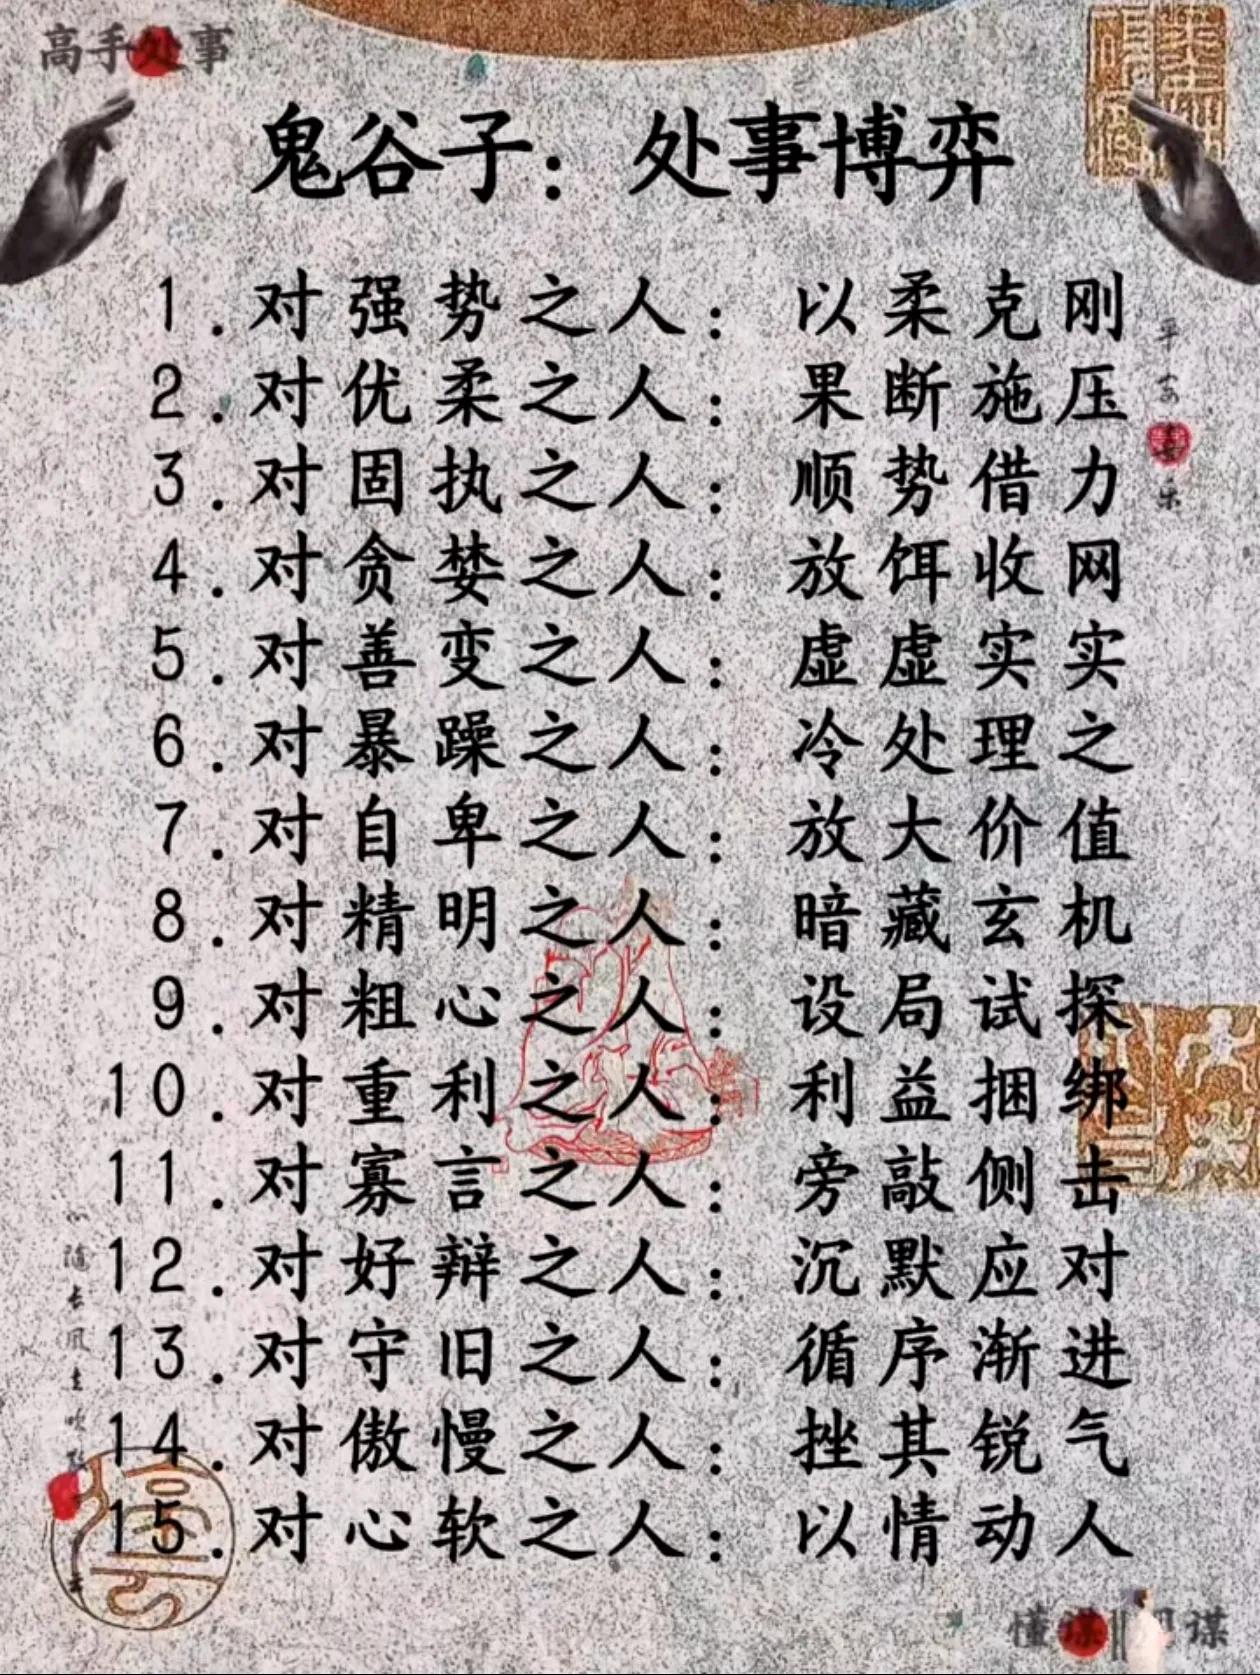 高手处事
鬼谷子：处事博弈
1.对强势之人：以柔克刚
2.对优柔之人：果断施压
3.对固执之人：顺势借力
4.对贪婪之人：放饵收网
5.对善变之人：虚虚实实
6.对暴躁之人：冷处理之
7.对自卑之人：放大价值
8.对精明之人：暗藏玄机
9.对粗心之人：设局试探
10.对重利之人：利益捆绑
11.对寡言之人：旁敲侧击
12.对好辩之人：沉默应对
13.对守旧之人：循序渐进
14.对傲慢之人：挫其锐气
15.对心软之人：以情动人